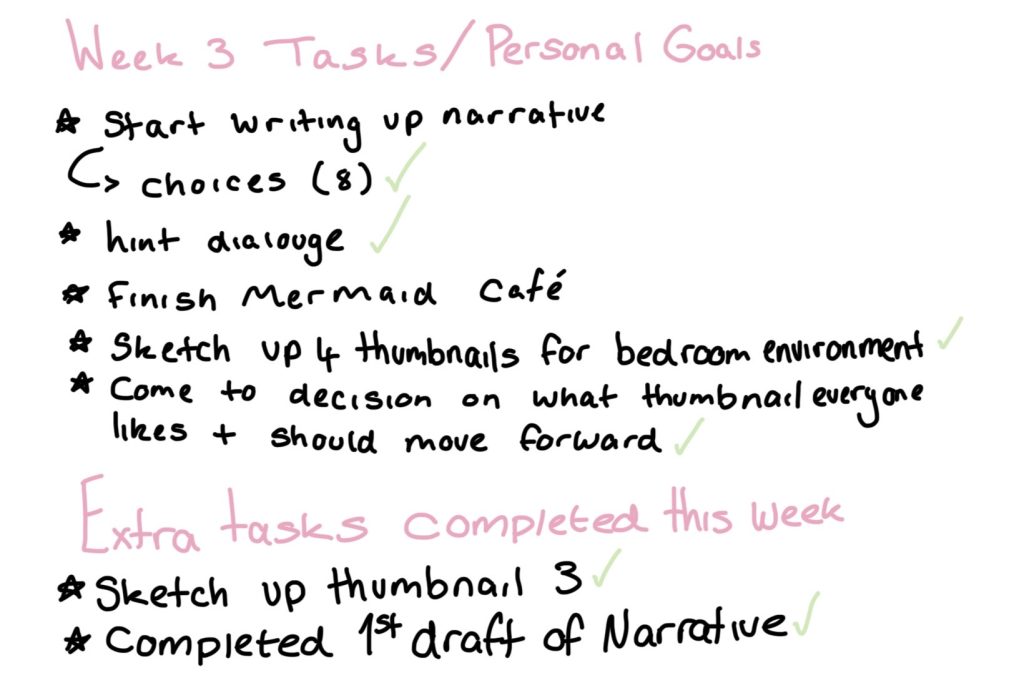 Week 3 Tasks/Personal Goals
Start writing up narrative
choices (8)
hint dialouge
Finish Mermaid Café
Sketch up 4 thumbnails for bedroom environment
Come to decision on what thumbnail everyone
likes + should move forward
Extra tasks completed this week
Sketch up thumbnail 3
Completed 1st draft of Narrative